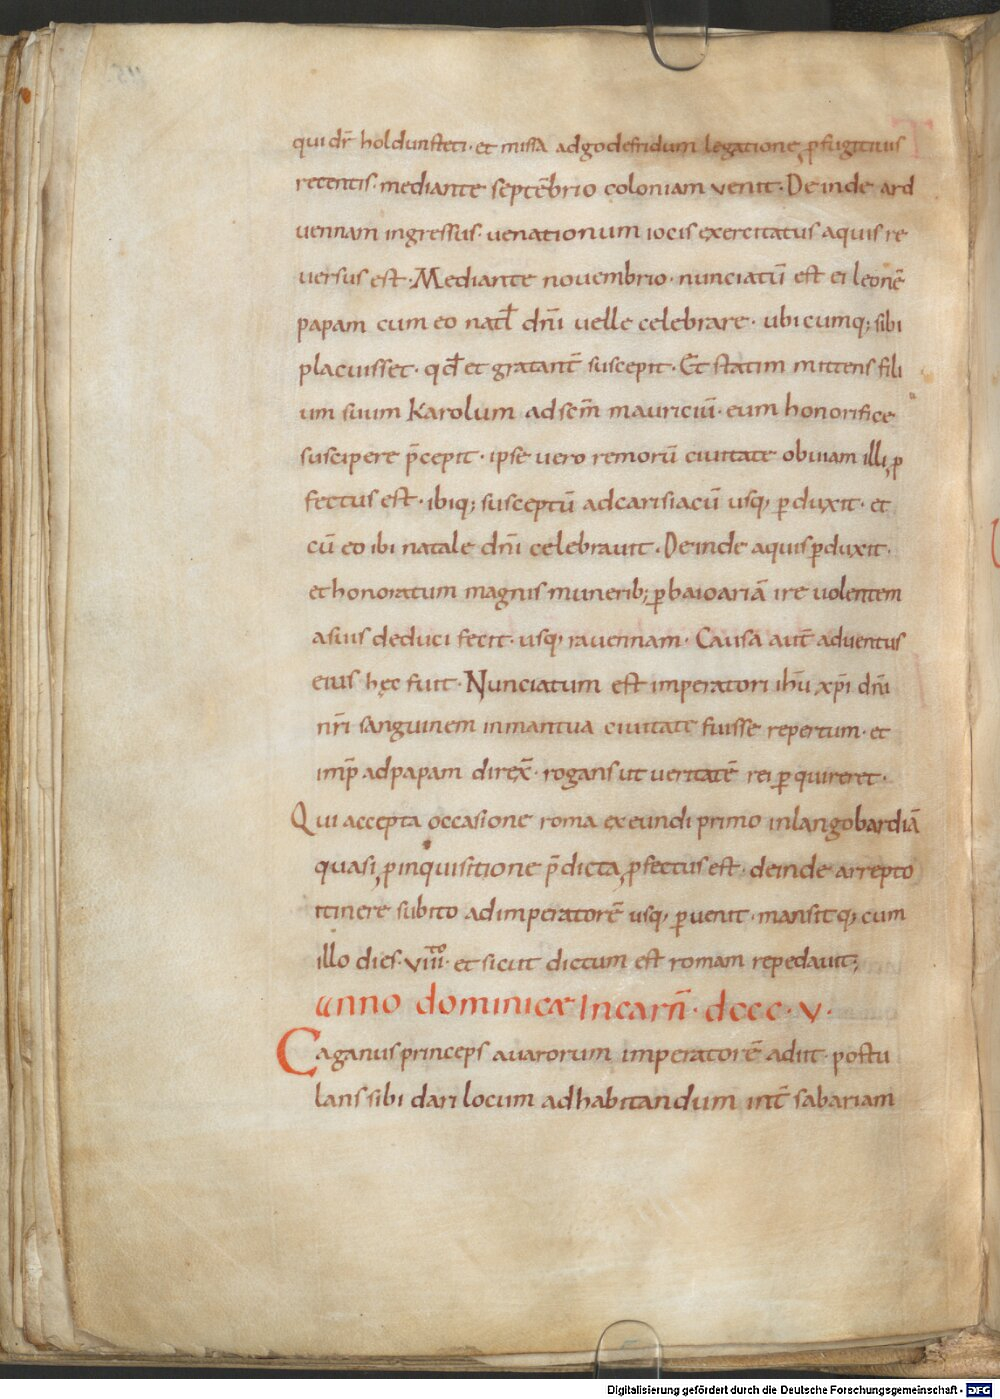 qui dr̄ holdunsteti· et missa adgodefridum legatione ꝓfugitiuis
recentis· mediante septēbrio coloniam venit· Deinde ard
uennam ingressus· uenationum iocis exercitatus aquis re
uersus est· Mediante nouembrio· nunciatū est ei leonē
papam cum eo natł dn̄i uelle celebrare· ubicumq; sibi
placuisset· qđ et gratant̄ suscepit· Et statim mittens fili
um suum Karolum adscm̄ mauriciū· eum honorifice
suscipere p̄cepit· ipse uero remorū ciuitate obuiam illi ꝓ
fectus est· ibiq; susceptū adcarisiacū usq; ꝑduxit· et
cū eo ibi natale dn̄i celebrauit· Deinde aquis ꝑduxit·
et honoratum magnis munerib; ꝑ baioariā ire uolentem
a suis deduci fecit· usq; rauennam· Causa aut̄ aduentus
eius hęc fuit· Nunciatum est imperatori ihū xp̄i dn̄i
nr̄i sanguinem inmantua ciuitate fuisse repertum· et
imp̄ adpapam direx̄· rogans ut ueritatē rei ꝑquireret·
Qui accepta occasione roma exeundi primo inlangobardiā
quasi ꝓ inquisitione p̄dicta ꝓfectus est· deinde arrepto
itinere subito adimperatorē usq; ꝑuenit· mansitq; cum
illo dies· viii̅· et sicut dictum est romam repedauit;
Anno dominicæ Incarn̄· dccc·v·
Caganus princeps auarorum imperatorē adiit· postu
lans sibi dari locum adhabitandum int̄ sabariam
Digitalisierung gefördert durch die Deutsche Forschungsgemeinschaft - DFG